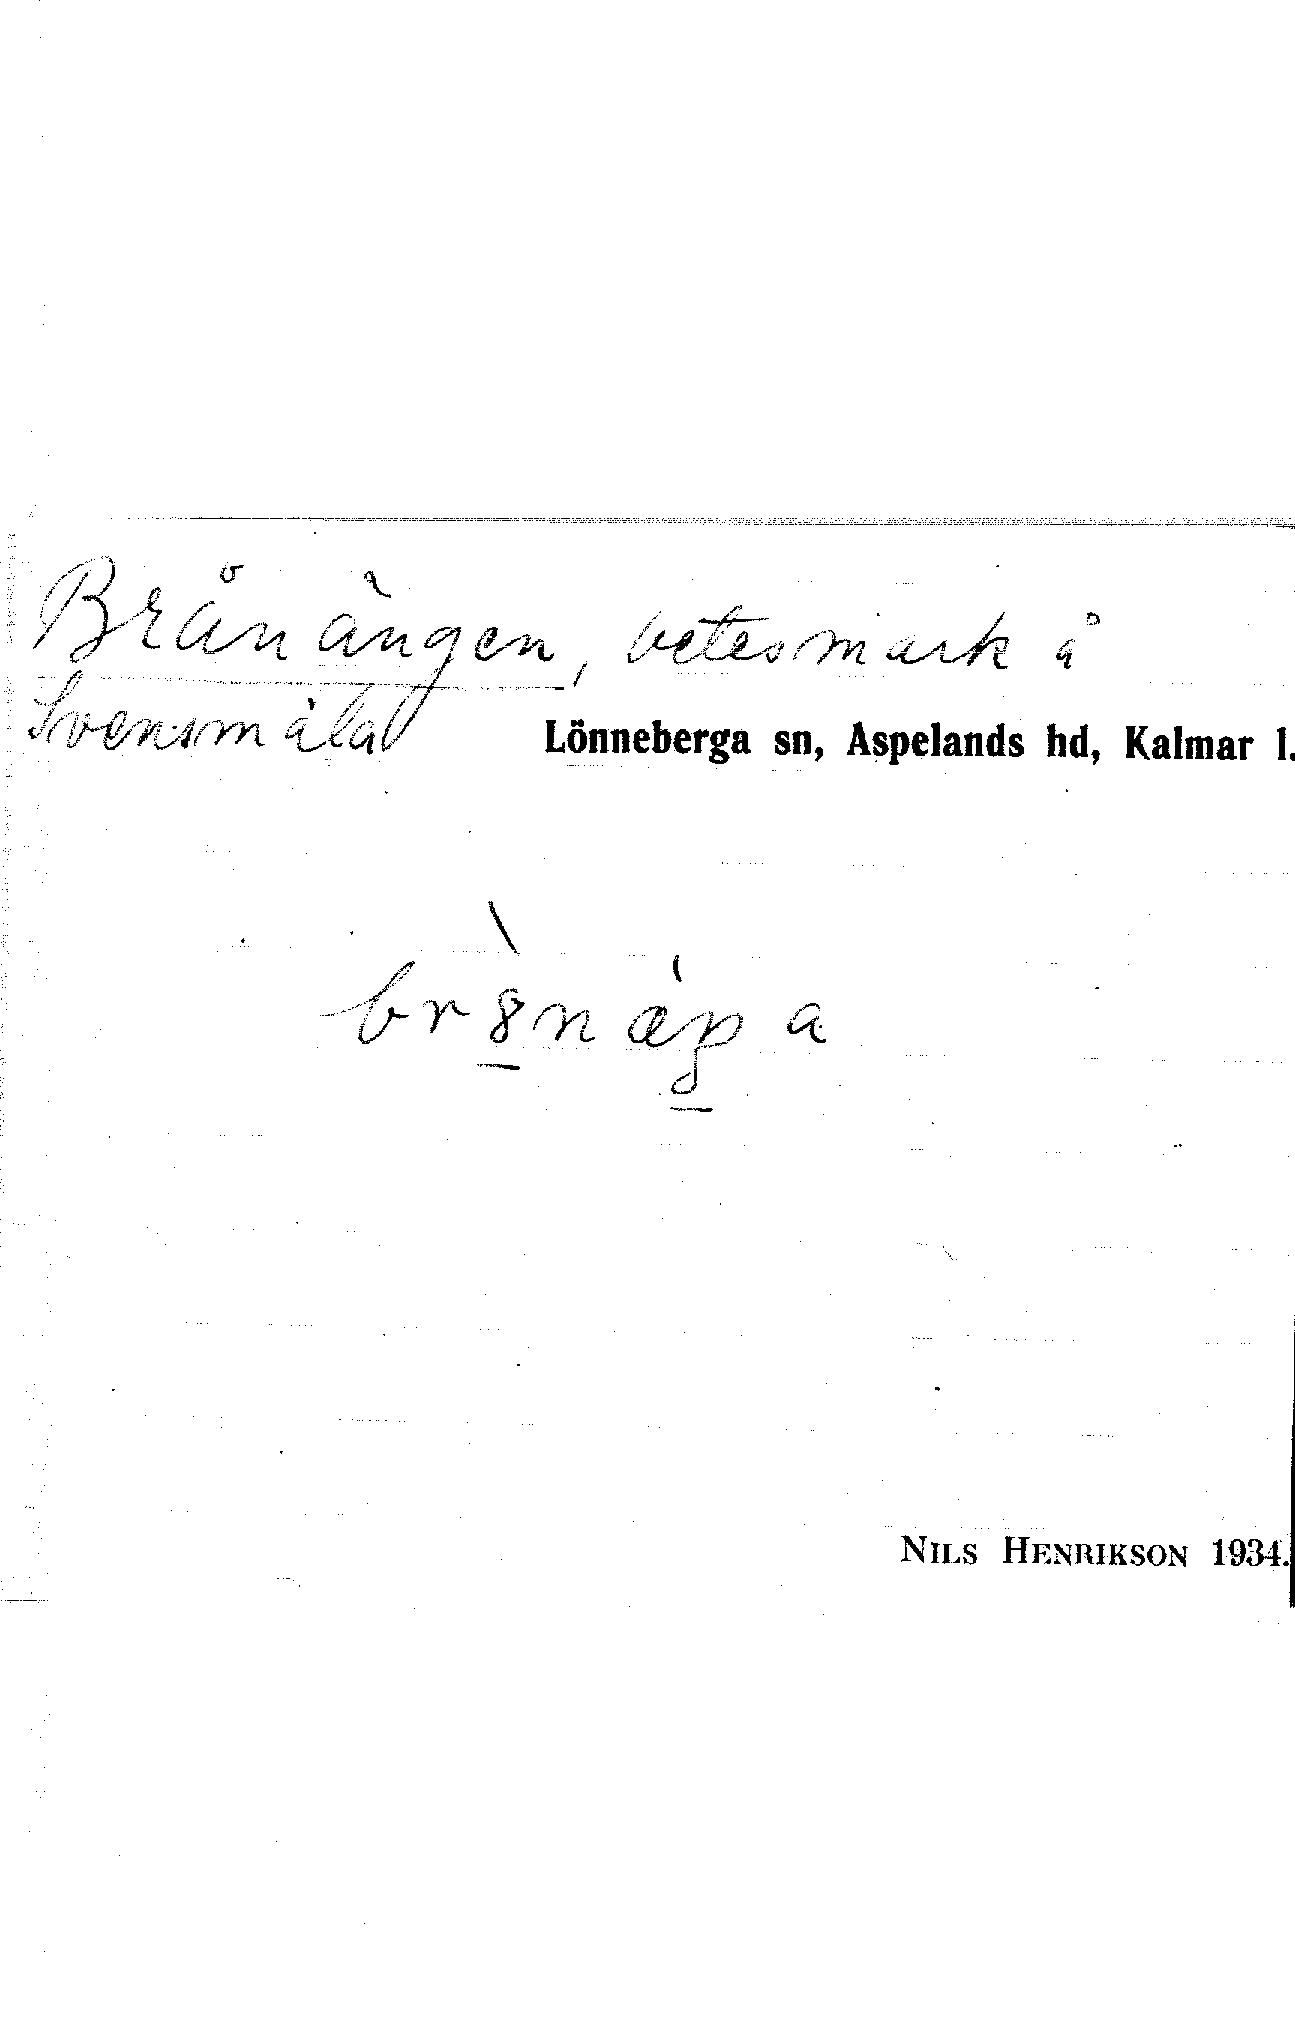 Brånängen, betesmark å
Svensmåla
Lönneberga sn, Aspelands hd, Kalmar l.
NILS HENRIKSON 1934.